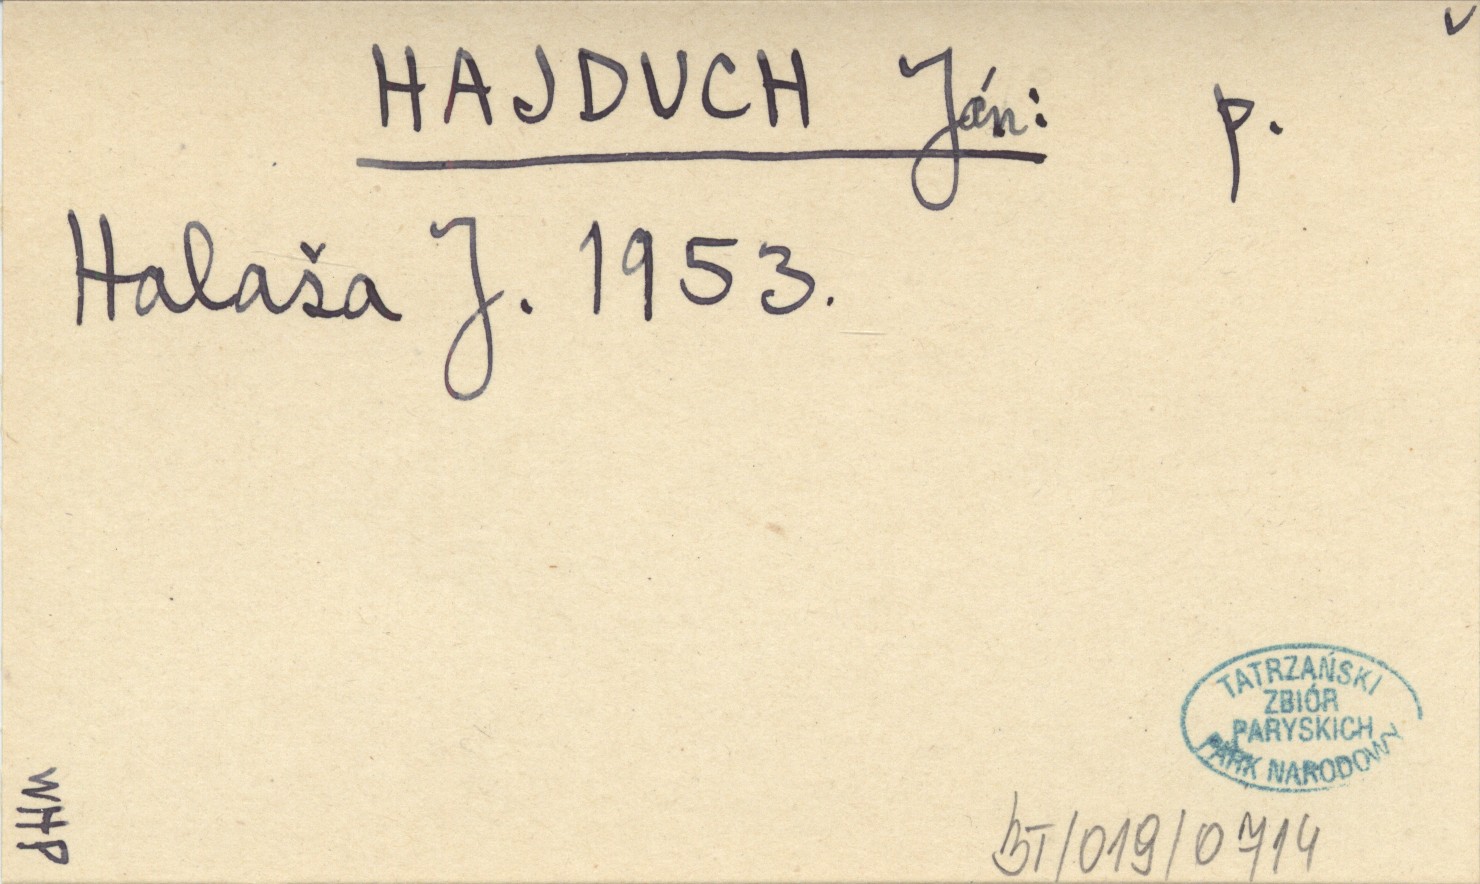 HAJDUCH Ján: p.
Halaša J. 1953.
TATRZAŃSKI
ZBIÓR
PARYSKICH
PARK NARODOWY
WHP
BT/019/0714